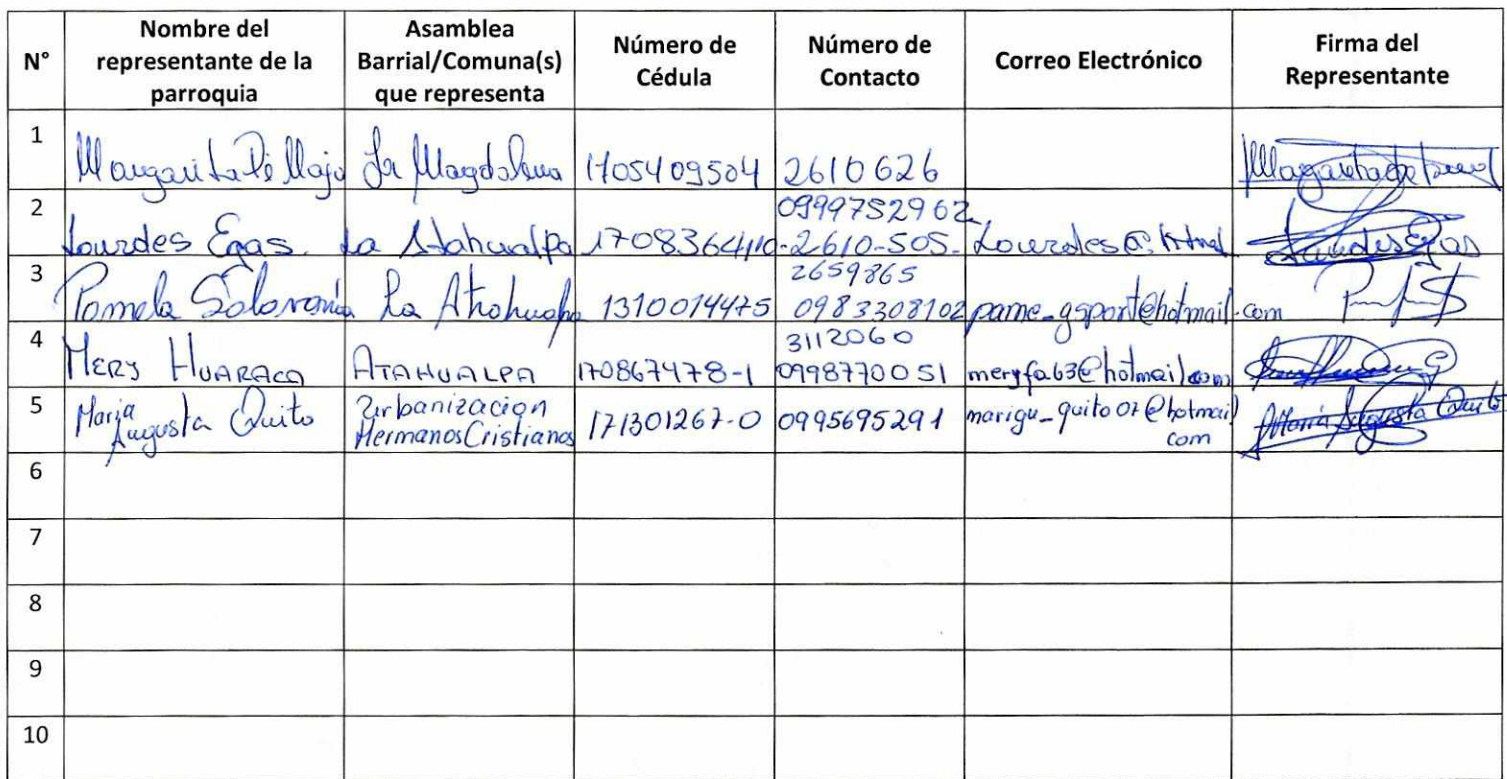 N° Nombre del representante de la parroquia Asamblea Barrial/Comuna(s) que representa Número de Cédula Número de Contacto Correo Electrónico Firma del Representante
1 Margarita Pillajo La Magdalena 1705409504 2610626
2 Lourdes Egas. La Atahualpa 0999752962 2610-505- Lourdes Egas
3 Pamela La 1310014475 2659865 0983308102 pame_gsport@hotmail.com
4 MERY HUARACA ATAHUALPA 170867478-1 3112060 0998770051 meryfa63@hotmail.com
5 Maria Augusta Quito Urbanizacion Hermanos Cristianos 171301267-0 0995695291 marigu_quito07@hotmail com Maria Augusta Quito
6
7
8
9
10